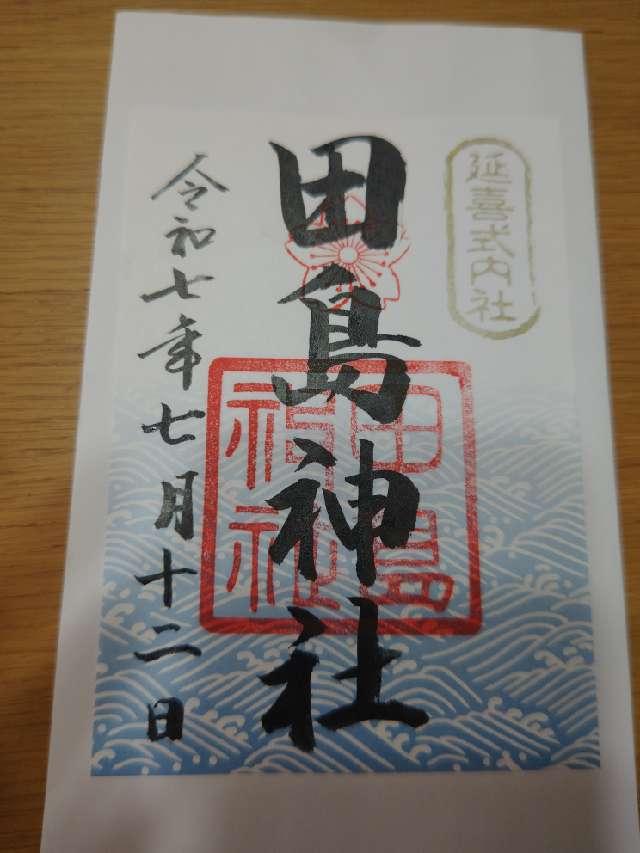 延喜式内社
田島神社
田島
神社
令和七年七月十二日